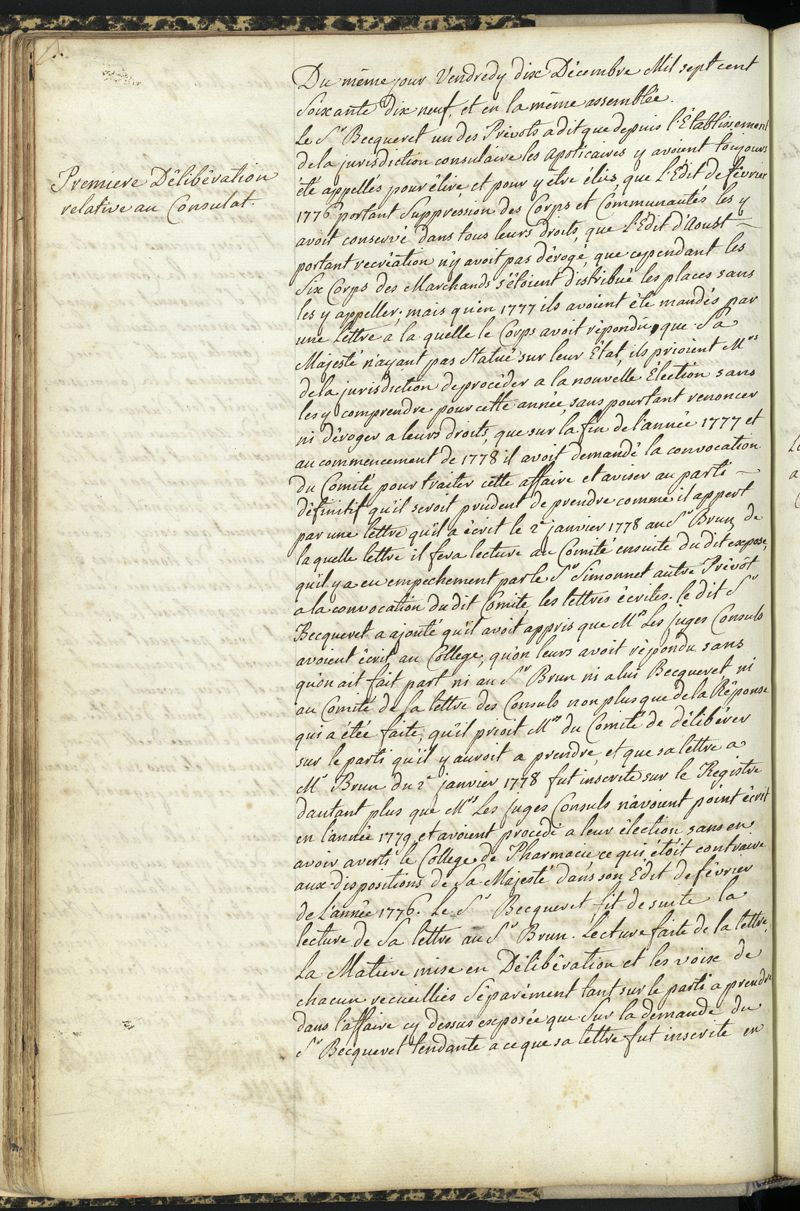 Premiere Délibération
relative au Consulat.
Du même jour Vendredy dix Décembre Mil sept cent
Soixante dix neuf, et en la même assemblée.
Le Sr Becqueret un des Prévots a dit que depuis l'Etablissement
de la jurisdiction consulaire les apoticaires y avoient toujours
été appellés pour élire et pour y être élus que l'Edit de février
1776 portant Suppression des Corps et Communautés les y
avoit conservé dans tous leurs droits, que l'Edit d'Aoust —
portant recréation n'y avoit pas dérogé, que cependant les
Six Corps des Marchands s'étoient distribué les places sans
les y appeller; mais qu'en 1777 ils avoient été mandés par
une Lettre à la quelle le Corps avoit répondu, que Sa
Majesté n'ayant pas Statué sur leur Etat, ils prioient Mrs
de la jurisdiction de procéder a la nouvelle Election sans
les y comprendre pour cette année, sans pourtant renoncer
ni déroger a leurs droits, que sur la fin de l'année 1777 et
au commencement de 1778 il avoit demandé la convocation
du Comité pour traiter cette affaire et aviser au parti —
définitif qu'il seroit prudent de prendre comme il appert
par une lettre qu'il a écrit le 2e janvier 1778 au Sr Brun, de
laquelle lettre il fera lecture au Comité ensuite du dit exposé,
qu'il y a eu empechement par le Sr Simonnet autre Prévot
a la convocation du dit Comité les lettres écrites. Le dit Sr
Becqueret a ajouté qu'il avoit appris que Mrs Les Juges Consuls
avoient écrit au College, qu'on leurs avoit répondu sans
qu'on ait fait part ni au Sr Brun ni a lui Becqueret ni
au Comité de la lettre des Consuls non plus que de la Réponse
qui a étée faite, qu'il prioit Mrs du Comité de délibérer
sur le parti qu'il y auroit a prendre, et que sa lettre a
Mr Brun du 2e janvier 1778 fut inscrite sur le Registre
dautant plus que Mrs Les Juges Consuls n'avoient point écrit
en l'année 1779 et avoient procédé a leur élection sans en
avoir averti le College de Pharmacie ce qui étoit contraire
aux dispositions de Sa Majesté dans son Edit de février
de L'année 1776. Le Sr Becqueret fit de suite la
lecture de Sa lettre au Sr Brun. Lecture faite de la lettre,
La Matiere mise en Délibération et les voix de
chacun recueillies Séparément tant sur le parti a prendre
dans l'affaire cy dessus exposée que Sur la demande du
Sr Becqueret tendante a ce que sa lettre fut inscrite en